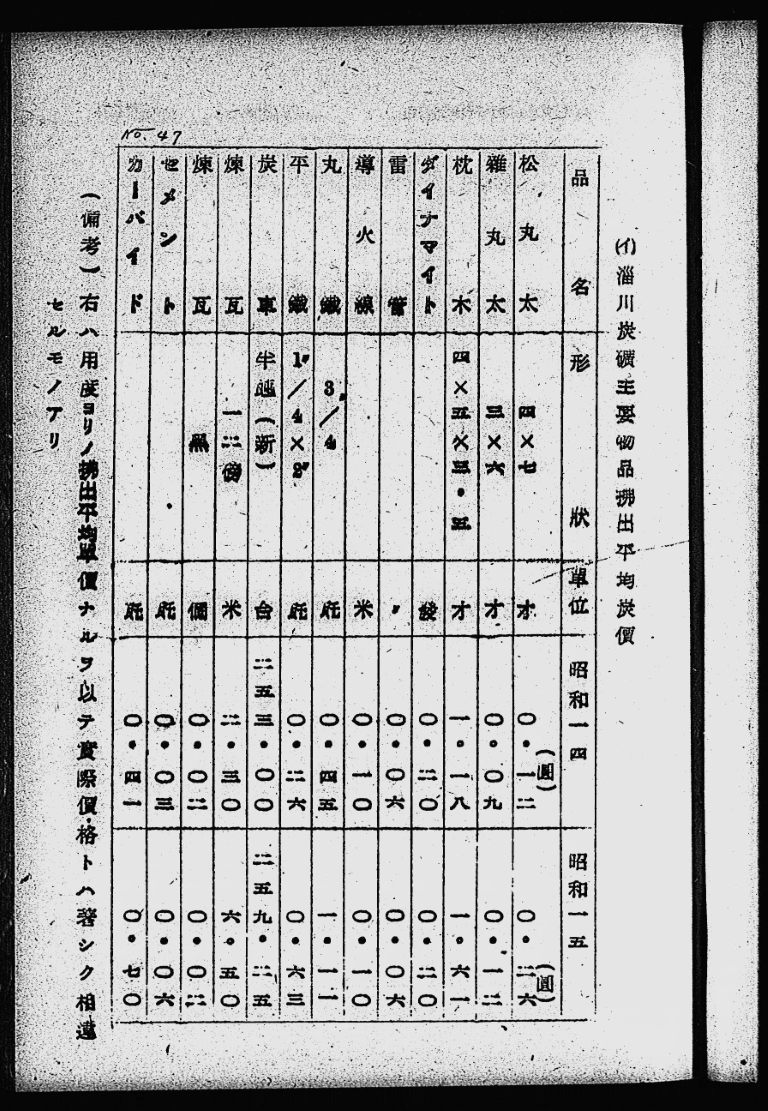 No. 47
(イ)淄川炭礦主要物品拂出平均炭價
品名 形狀 單位 昭和一四(圓) 昭和一五(圓)
松丸太 四×七 才 〇・一二 〇・二六
雜丸太 三×六 才 〇。〇九 〇・一二
枕木 四×五×三・五 才 一。一八 一。六一
ダイナマイト 發 〇・二〇 〇・二〇
雷管 〃 〇・〇六 〇・〇六
導火線 米 〇・一〇 〇・一〇
丸鐵 3/4" 瓩 〇・四五 一・一一
平鐵 1"/4×2" 瓩 〇・二六 〇・六三
炭車 半噸(新) 台 二五三・〇〇 二五九・二五
煉瓦 一二磅 米 二・三〇 六。五〇
煉瓦 黑 個 〇・〇二 〇・〇二
セメント 瓩 〇・〇三 〇・〇六
カーバイド 瓩 〇・四一 〇・七〇
(備考)右ハ用度ヨリノ拂出平均單價ナルヲ以テ實際價格トハ著シク相違
セルモノアリ